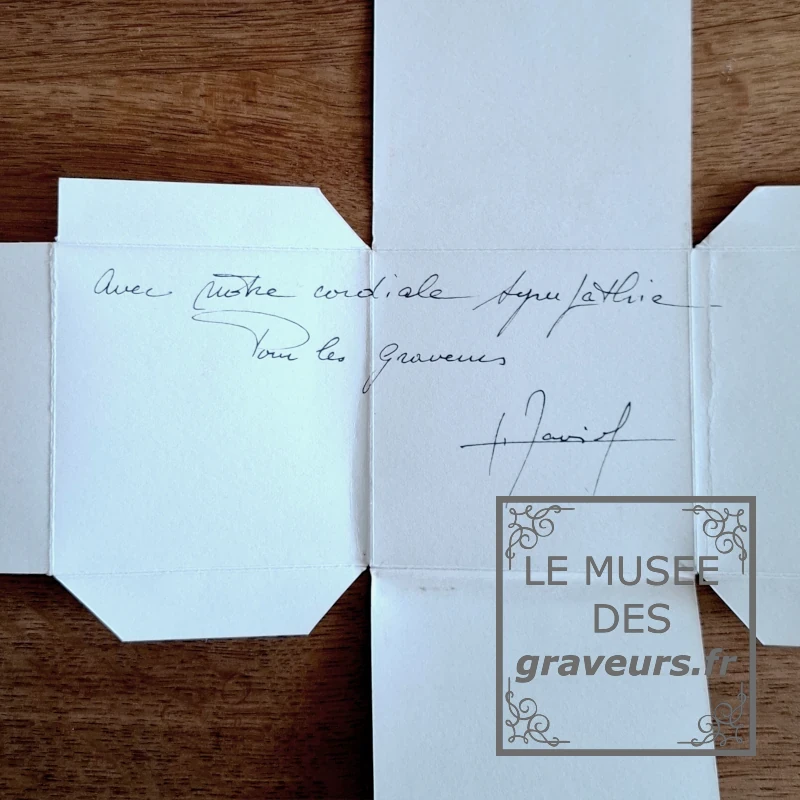 Avec notre cordiale sympathie
Pour les graveurs
LE MUSEE
DES
graveurs.fr